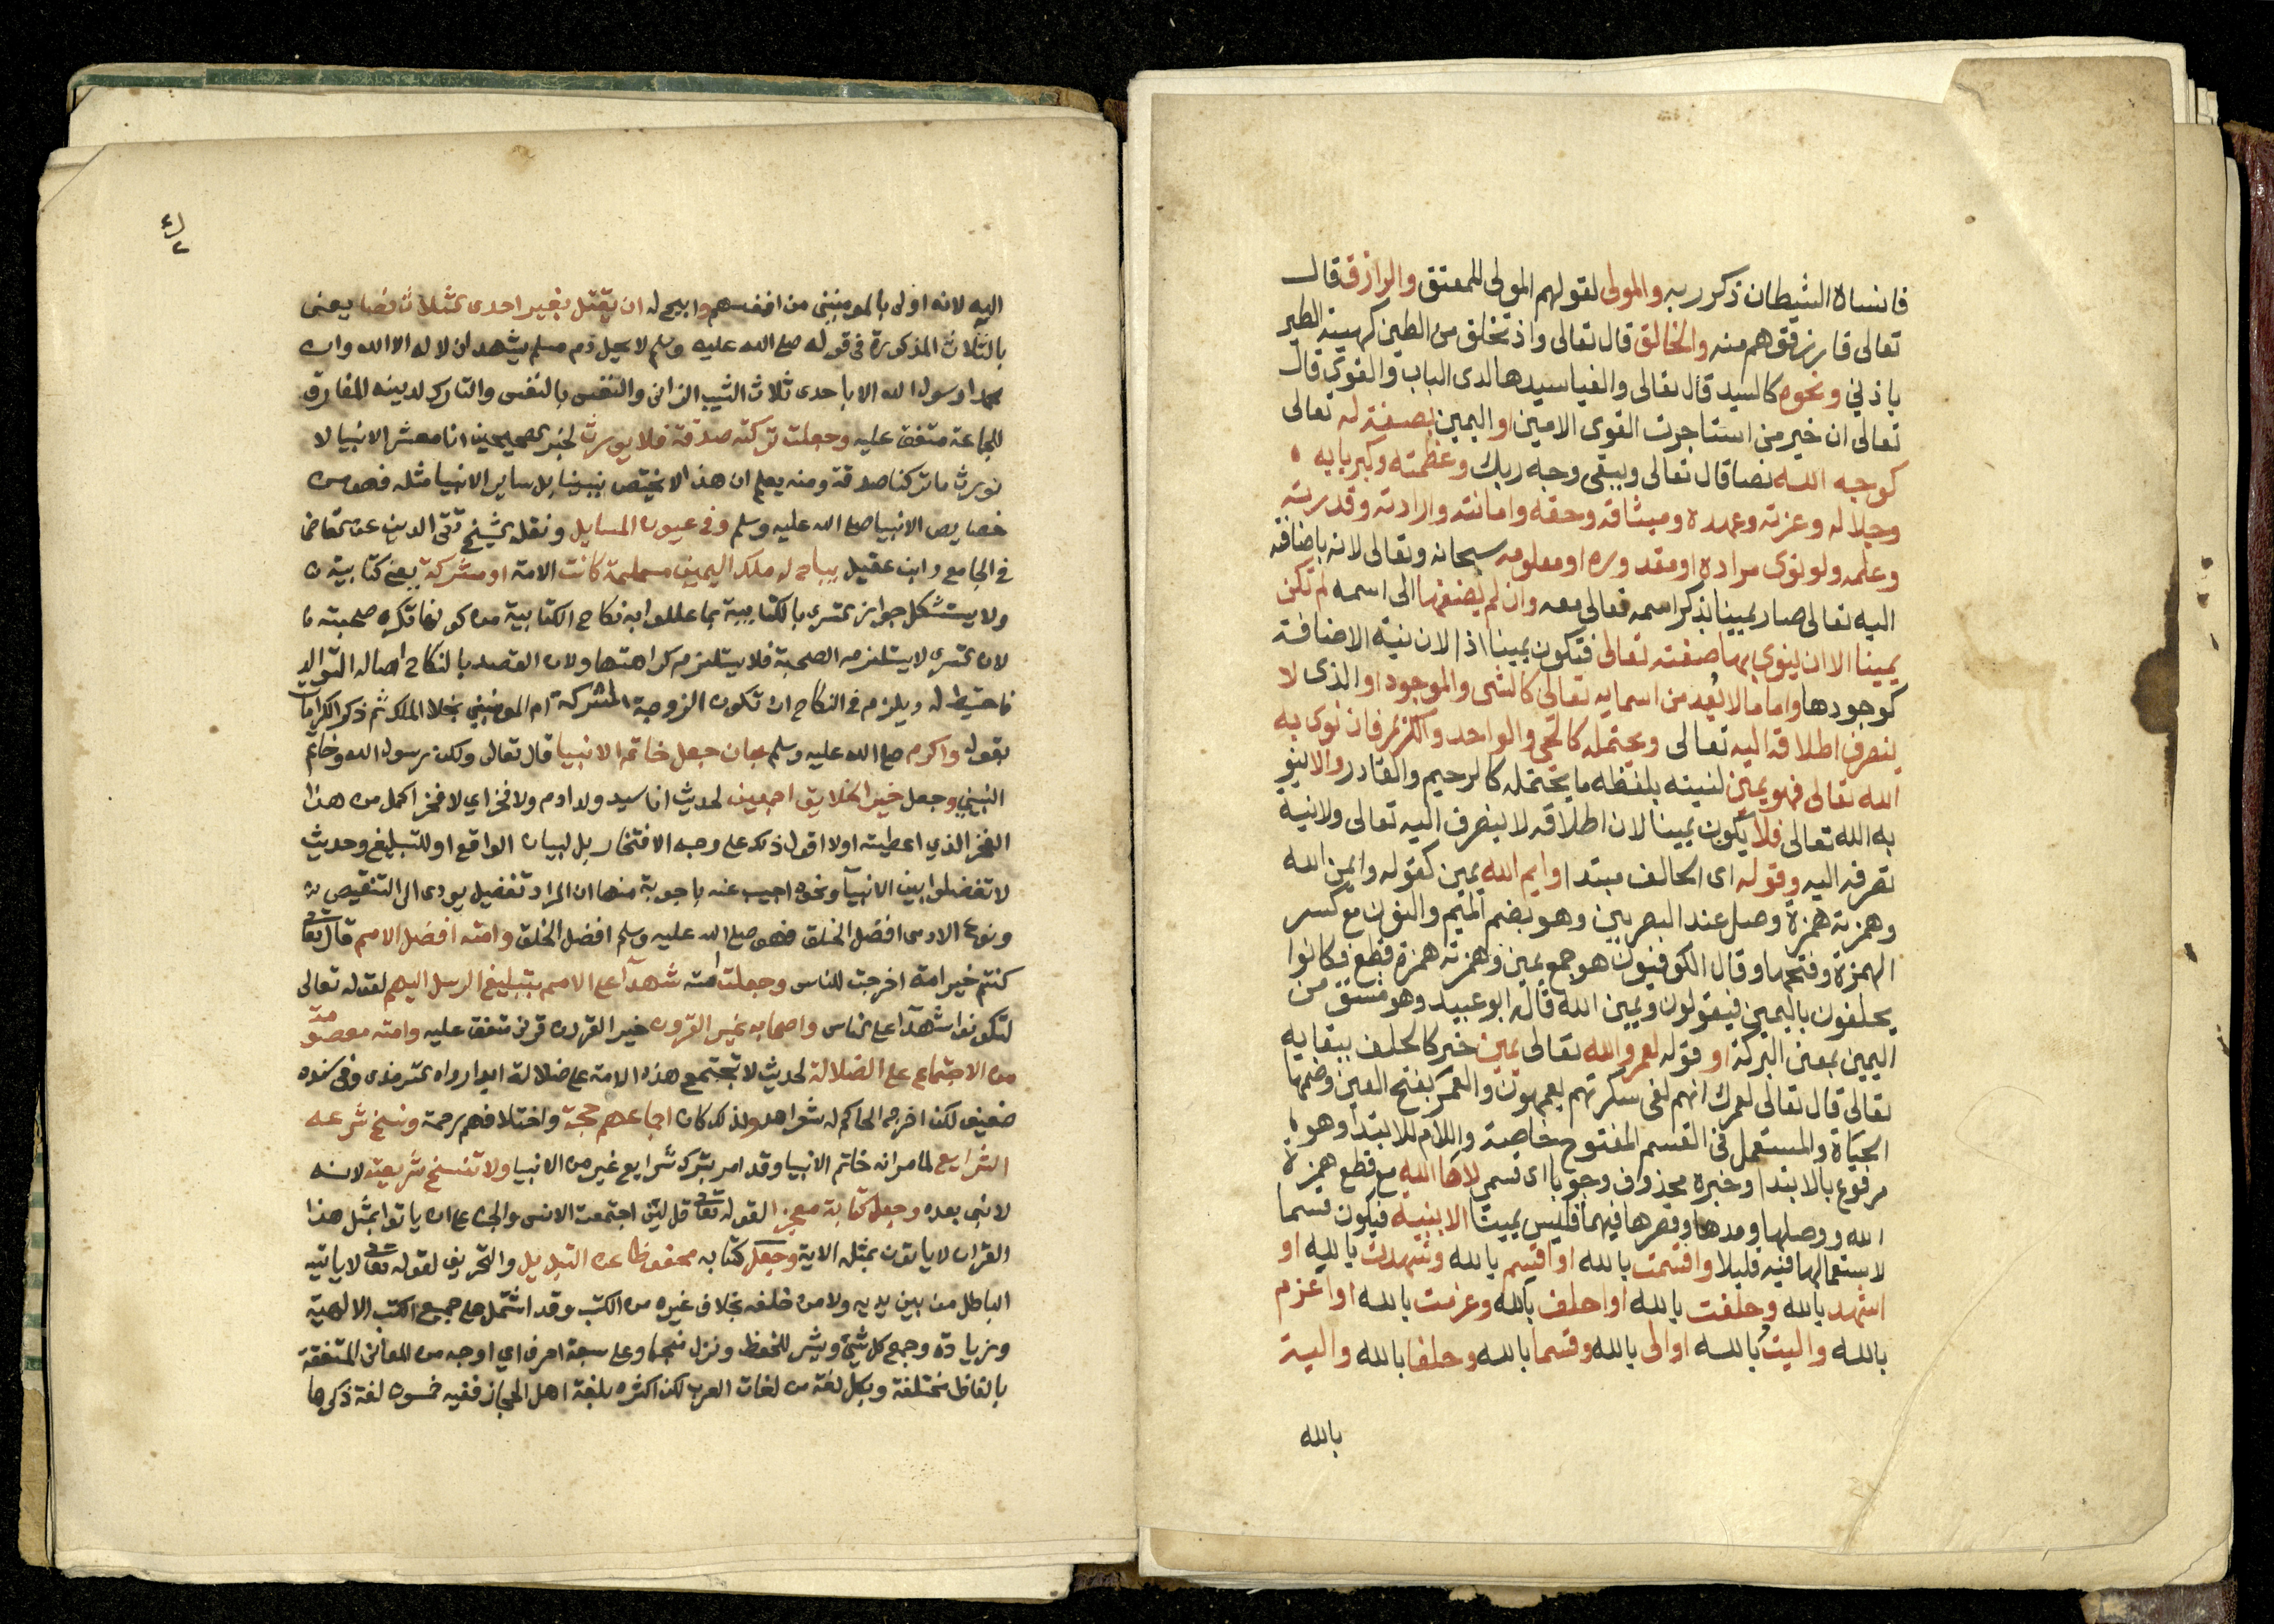 فانساه الشيطان ذكر ربه والمولى لقولهم المولى للمعتق والرازق قال
تعالى فارزقوهم منه والخالق قال تعالى واذ تخلق من الطين كهيئة الطير
باذني ونحوه كالسيد قال تعالى والفيا سيدها لدى الباب والقوي قال
تعالى ان خير من استاجرت القوى الامين او اليمين بصفة له تعالى
كوجه الله نصا قال تعالى ويبقى وجه ربك وعظمته وكبريايه
وجلاله وعزته وعهده وميثاقه وحقه وامانته وارادته وقدرته
وعلمه ولو نوى مراده او مقدوره او معلومه سبحانه وتعالى لانه باضافة
اليه تعالى صار يمينا بذكر اسمه تعالى معه وان لم يضفها الى اسمه لم تكن
يمينا الا ان ينوي بها صفته تعالى فتكون يمينا اذا لان نية الاضافة
كوجودها واما ما لا يُعد من اسمايه تعالى كالشى والموجود او الذى لا
ينصرف اطلاقه اليه تعالى ويحتمله كالحي والواحد والكريم فان نوى به
الله تعالى فهو يمين لنيته بلفظه ما يحتمله كالرحيم والقادر والا ينو
به الله تعالى فلا يكون يمينا لان اطلاقه لا ينصرف اليه تعالى ولا نية
تصرفه اليه وقوله اى الحالف مبتدا وايم الله يمين كقوله وايمن الله
وهمزته همزة وصل عند البصريين وهو بضم الميم والنون مع كسر
الهمزة وفتحها وقال الكوفيون هو جمع يمين وهمزته همزة قطع فكانوا
يحلفون باليمين فيقولون ويمين الله قاله ابو عبيد وهو مشتق من
اليمين بمعنى البركة او قوله لعمر والله تعالى يمين خبر كالحلف ببقايه
تعالى قال تعالى لعمرك انهم لفى سكرتهم يعمهون والعمر بفتح العين وضمها
الحياة والمستعمل في القسم المفتوح خاصة واللام للابتدا وهو
مرفوع بالابتدا وخبره محذوف وجوبا اى قسمي لاها الله مع قطع همزة
الله ووصلها ومدها وقصرها فيهما فليس يمينا الا بنية فيكون قسما
لاستعمالها فيه قليلا واقسمت بالله او اقسم بالله وشهدت بالله او
اشهد بالله وحلفت بالله او احلف بالله وعزمت بالله او اعزم
بالله واليتُ بالله او الى بالله وقسما بالله وحلفا بالله والية
بالله
اليه لانه اولى بالمومنين من انفسهم وابيح له ان يقتل بغير احدى الثلاث نصا يعنى
بالثلاث المذكورة في قوله صلى الله عليه وسلم لا يحل دم مسلم يشهد ان لا اله الا الله وان
محمدا رسول الله الا باحدى ثلاث الثيب الزانى والنفس بالنفس والتارك لدينه المفارق
للجماعة متفق عليه وجعلت تركته صدقة فلا يورث لخبر الصحيحين انا معشر الانبيا لا
نورث ما تركنا صدقة ومنه يعلم ان هذا لا يختص بنبينا بل ساير الانبيا مثله فهو من
خصايص الانبيا صلى الله عليه وسلم وفي عيون المسايل ونقله الشيخ تقى الدين عن القاضى
في الجامع وابن عقيل يباح له ملك اليمين مسلمة كانت الامة او مشركة يعنى كتابية
ولا يستشكل جواز التسري بالكتابية بما عللوا به نكاح الكتابية من كونها تكره صحبته
لان التسري لا يستلزم الصحبة فلا يستلزم كراهتها ولان القصد بالنكاح اصالة التوالد
فاحتيط له ويلزم في النكاح ان تكون الزوجة المشركة ام المومنين بخلاف الملك ثم ذكر الكرامات
بقوله واكرم صلى الله عليه وسلم بان جعل خاتم الانبيا قال تعالى ولكن رسول الله وخاتم
النبيين وجعل خير الخلايق اجمعين لحديث انا سيد ولد ادم ولا فخر اي لا فخر اكمل من هذا
الفخر الذي اعطيته اولا اقول ذلك على وجه الافتخار بل لبيان الواقع او للتبليغ وحديث
لا تفضلوا بين الانبيآ ونحوه اجيب عنه باجوبة منها ان المراد تفضيل يودى الى التنقيص
ونوع الادمى افضل الخلق فهو صلى الله عليه وسلم افضل الخلق وامته افضل الامم قال تعالى
كنتم خير امة اخرجت للناس وجعلت امته شهدآ على الامم بتبليغ الرسل اليهم لقوله تعالى
لتكونوا شهدآ على الناس واصحابه خير القرون خير القرون قرنى متفق عليه وامته معصومة
من الاجتماع على الضلالة لحديث لا تجتمع هذه الامة على ضلالة ابدا رواه الترمذى وفي سنده
ضعيف لكن اخرج الحاكم له شواهد ولذلك كان اجماعهم حجة واختلافهم رحمة ونسخ شرعه
الشرايع لما مر انه خاتم الانبيا وقد امر بترك شرايع غيره من الانبيا ولا تنسخ شريعته لانه
لا نبى بعده وجعل كتابه معجزا لقوله تعالى قل لئن اجتمعت الانس والجن على ان ياتوا بمثل هذا
القران لا ياتون بمثله الاية وجعل كتابه محفوظا عن التبديل والتحريف لقوله تعالى لا ياتيه
الباطل من بين يديه ولا من خلفه بخلاف غيره من الكتب وقد اشتمل على جميع الكتب الالهية
وزيادة وجمع كل شيء ويسر للحفظ ونزل منجما وعلى سبعة احرف اي اوجه من المعانى المتفقة
بالفاظ مختلفة وبكل لغة من لغات العرب لكن اكثره بلغة اهل الحجاز ففيه خمسون لغة ذكرها